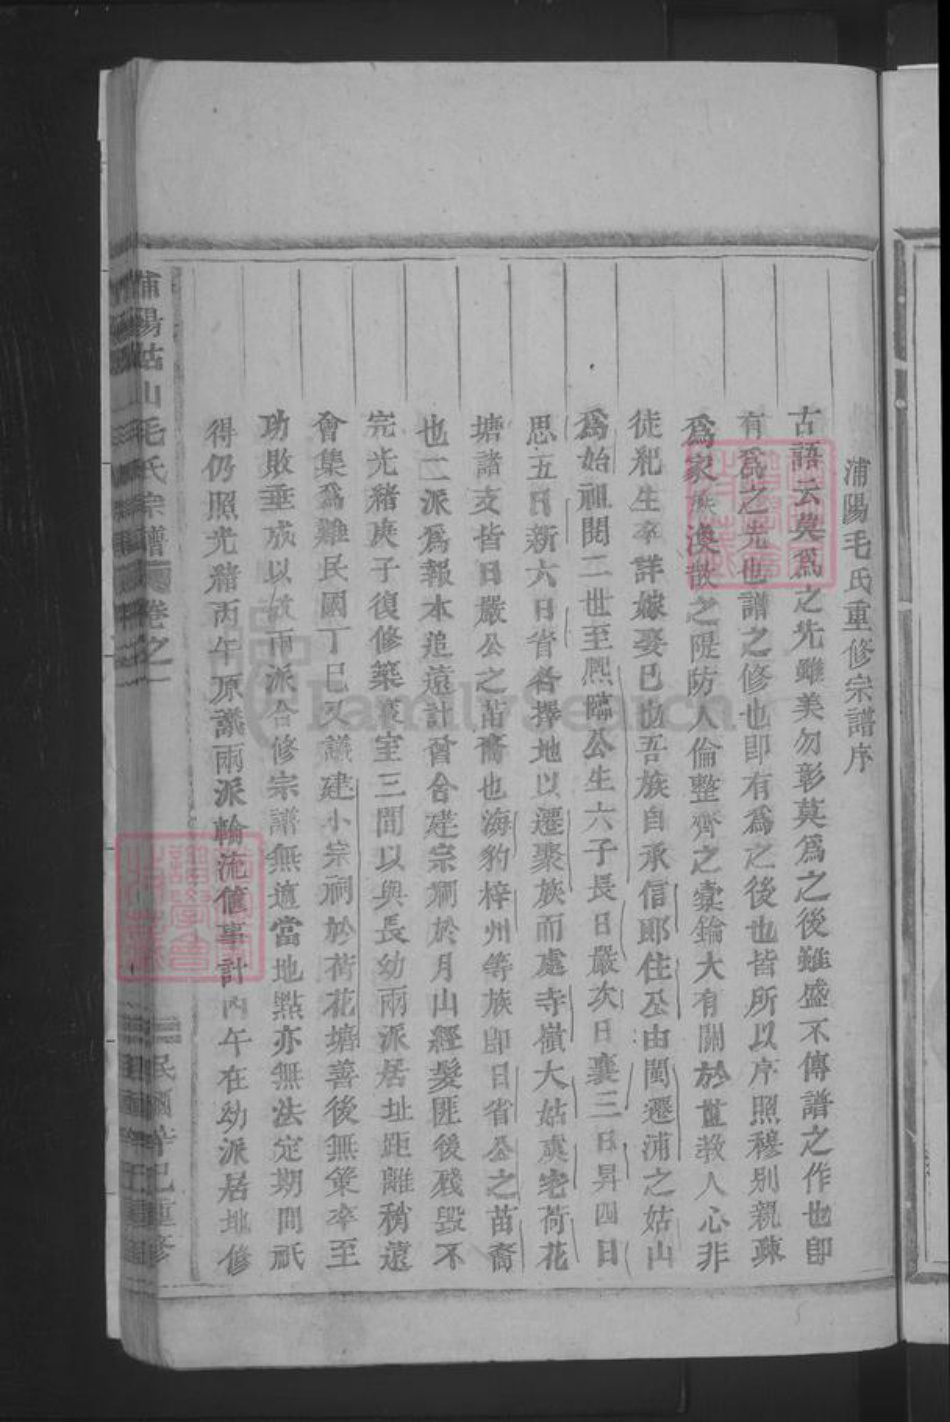 浦陽毛氏重修宗譜序
古語云莫爲之先雖美勿彰莫爲之後雖盛不傳譜之作也卽
有爲之先也譜之修也卽有爲之後也皆所以序照穆别親疎
爲家族渙散之隄防人倫整齊之橐鑰大有關於世教人心非
徒紀生卒詳嫁娶已也吾族自承信郎住公由閩遷浦之姑山
爲始祖閱二世至熙臨公生六子長日嚴次日襄三日昇四日
思五日新六日省各擇地以遷聚族而處寺嶺大姑虞宅荷花
塘諸支皆日嚴公之苗裔也海豹梓州等族卽日省公之苗裔
也二派爲報本追遠計曾合建宗祠於月山經髮匪後殘毀不
完光緒庚子復修築寢室三間以與長幼兩派居址距離稍遠
會集爲難民國丁巳又議建小宗祠於荷花塘善後無策卒至
功敗垂成以故兩派合修宗譜無適當地點亦無法定期間祇
得仍照光緒丙午原議兩派輪流值事計丙午在幼派居地修
浦陽姑山毛氏宗譜 卷之一 民國辛巳重修
FamilySearch